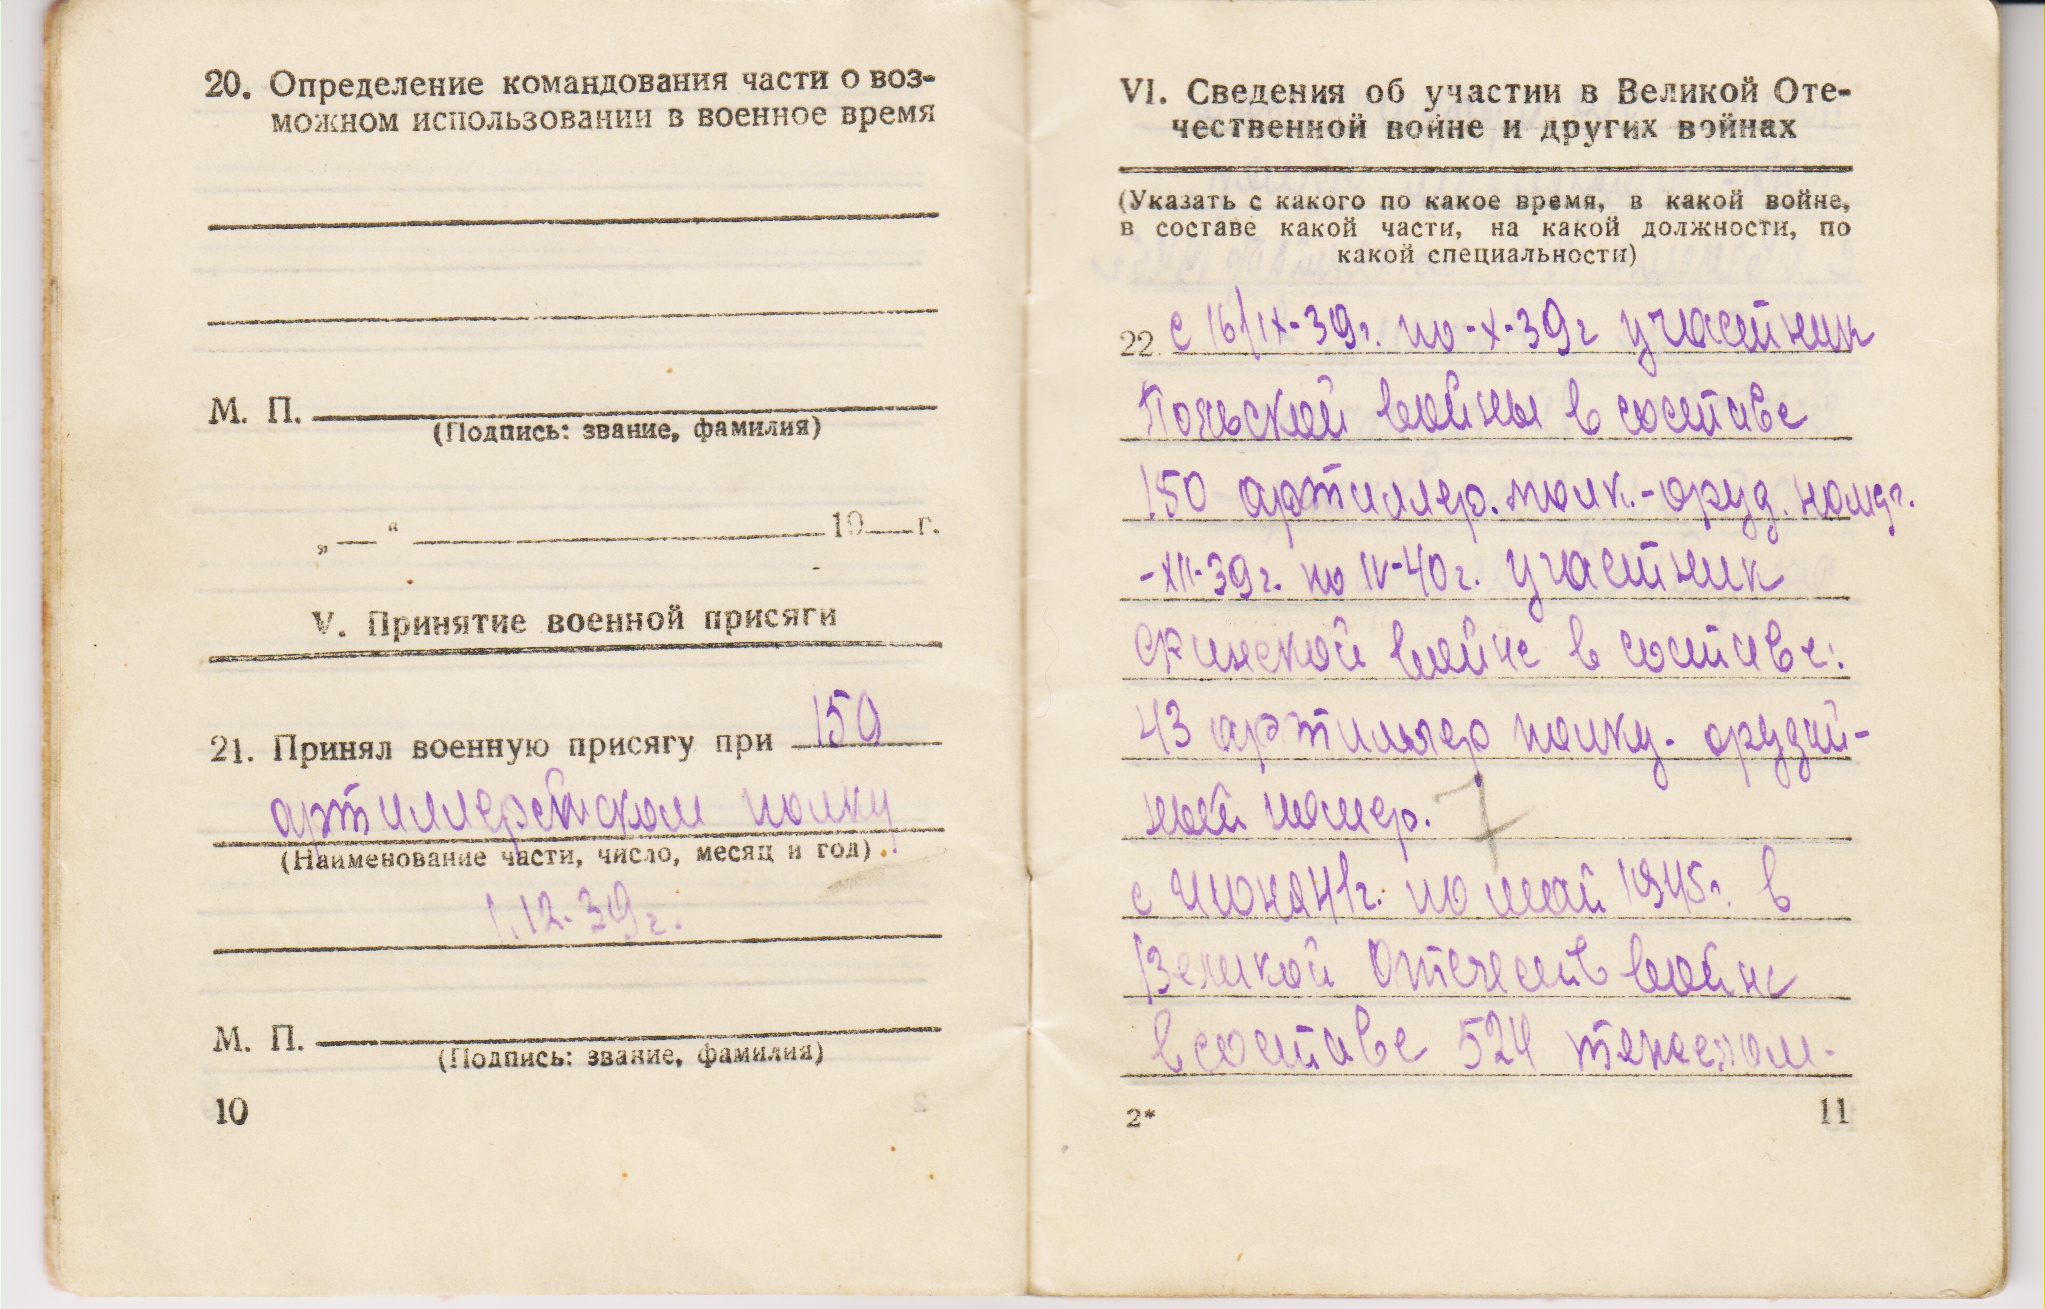 20. Определение командования части о воз-
можном использовании в военное время
М. П.
(Подпись: звание, фамилия)
„ — “ 19 г.
V. Принятие военной присяги
21. Принял военную присягу при 150
артиллерейском полку
(Наименование части, число, месяц и год)
1.12.39г.
М. П.
(Подпись: звание, фамилия)
10
VI. Сведения об участии в Великой Оте-
чественной войне и других войнах
(Указать с какого по какое время, в какой войне,
в составе какой части, на какой должности, по
какой специальности)
22 с 16/IX-39г. по -X-39г участник
Польской войны в составе
150 артиллер. полк.-оруд. номер.
-XII-39г. по IV-40г. участник
финской войне в составе:
43 артиллер полку. орудий-
ный номер.
с июня 41г. по май 1945г. в
Великой Отечеств войне
в составе 524 тяжелом.
2*
11